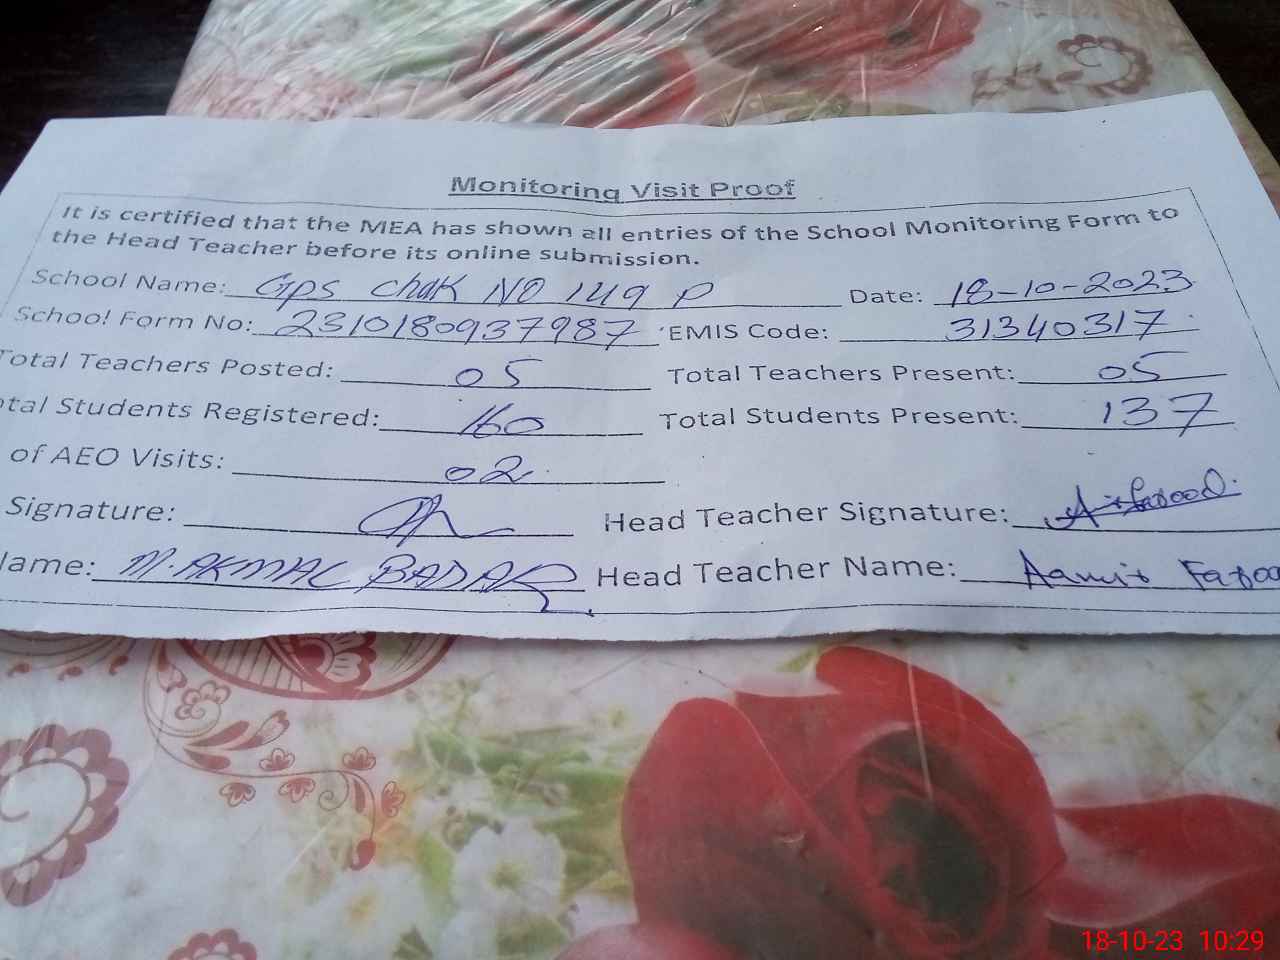 Monitoring Visit Proof
It is certified that the MEA has shown all entries of the School Monitoring Form to
the Head Teacher before its online submission.
School Name: GPS Chak NO 149 P Date: 18-10-2023
School Form No: 2310180937987 EMIS Code: 31340317
Total Teachers Posted: 05 Total Teachers Present: 05
otal Students Registered: 160 Total Students Present: 137
of AEO Visits: 02
Signature: Head Teacher Signature:
Name: M. AKMAL BADAR Head Teacher Name: Aamir Faroo
18-10-23 10:29